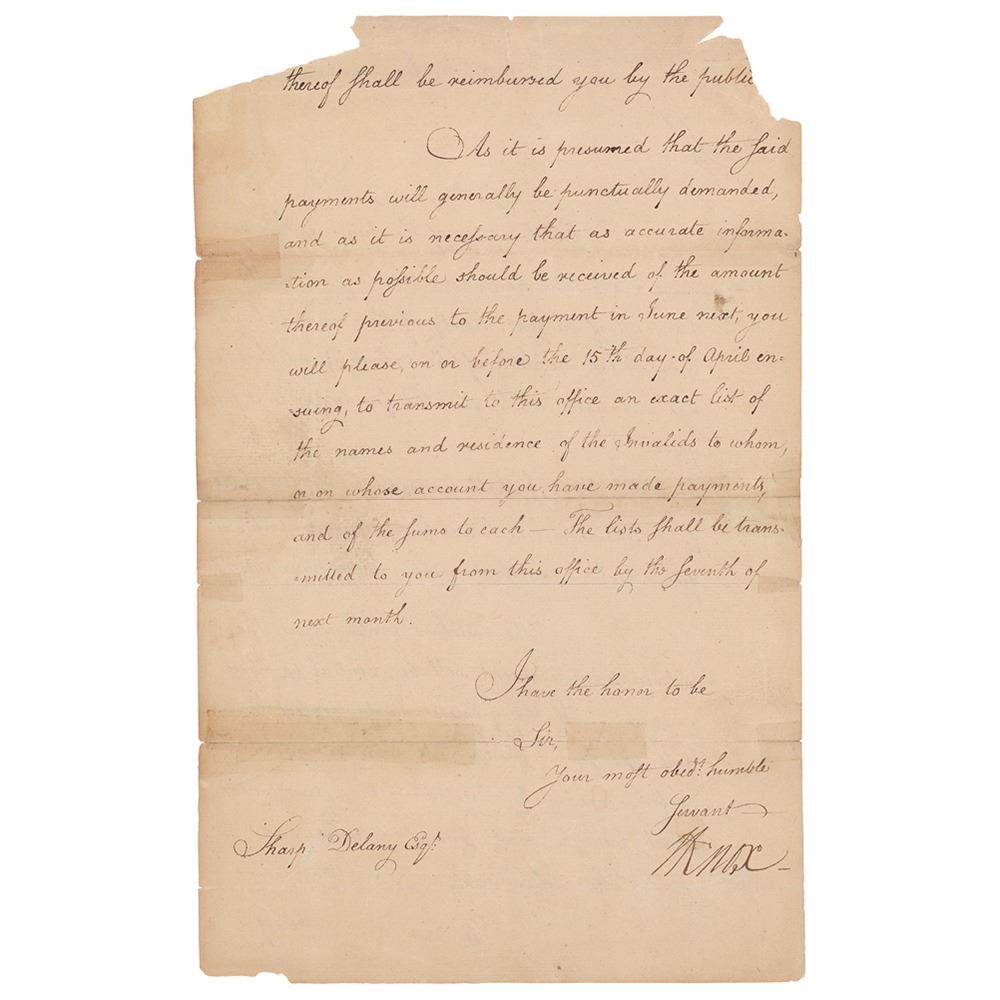 thereof shall be reimbursed you by the public
As it is presumed that the said
payments will generally be punctually demanded,
and as it is necessary that as accurate informa-
-tion as possible should be received of the amount
thereof previous to the payment in June next, you
will please, on or before the 15th day of April en=
=suing, to transmit to this office an exact list of
the names and residence of the Invalids to whom,
or on whose account you have made payments,
and of the sums to each — The lists shall be trans-
-mitted to you from this office by the seventh of
next month.
I have the honor to be
Sir,
Your most obedt. humble
Servant
HKnox
Sharp Delany Esqr.